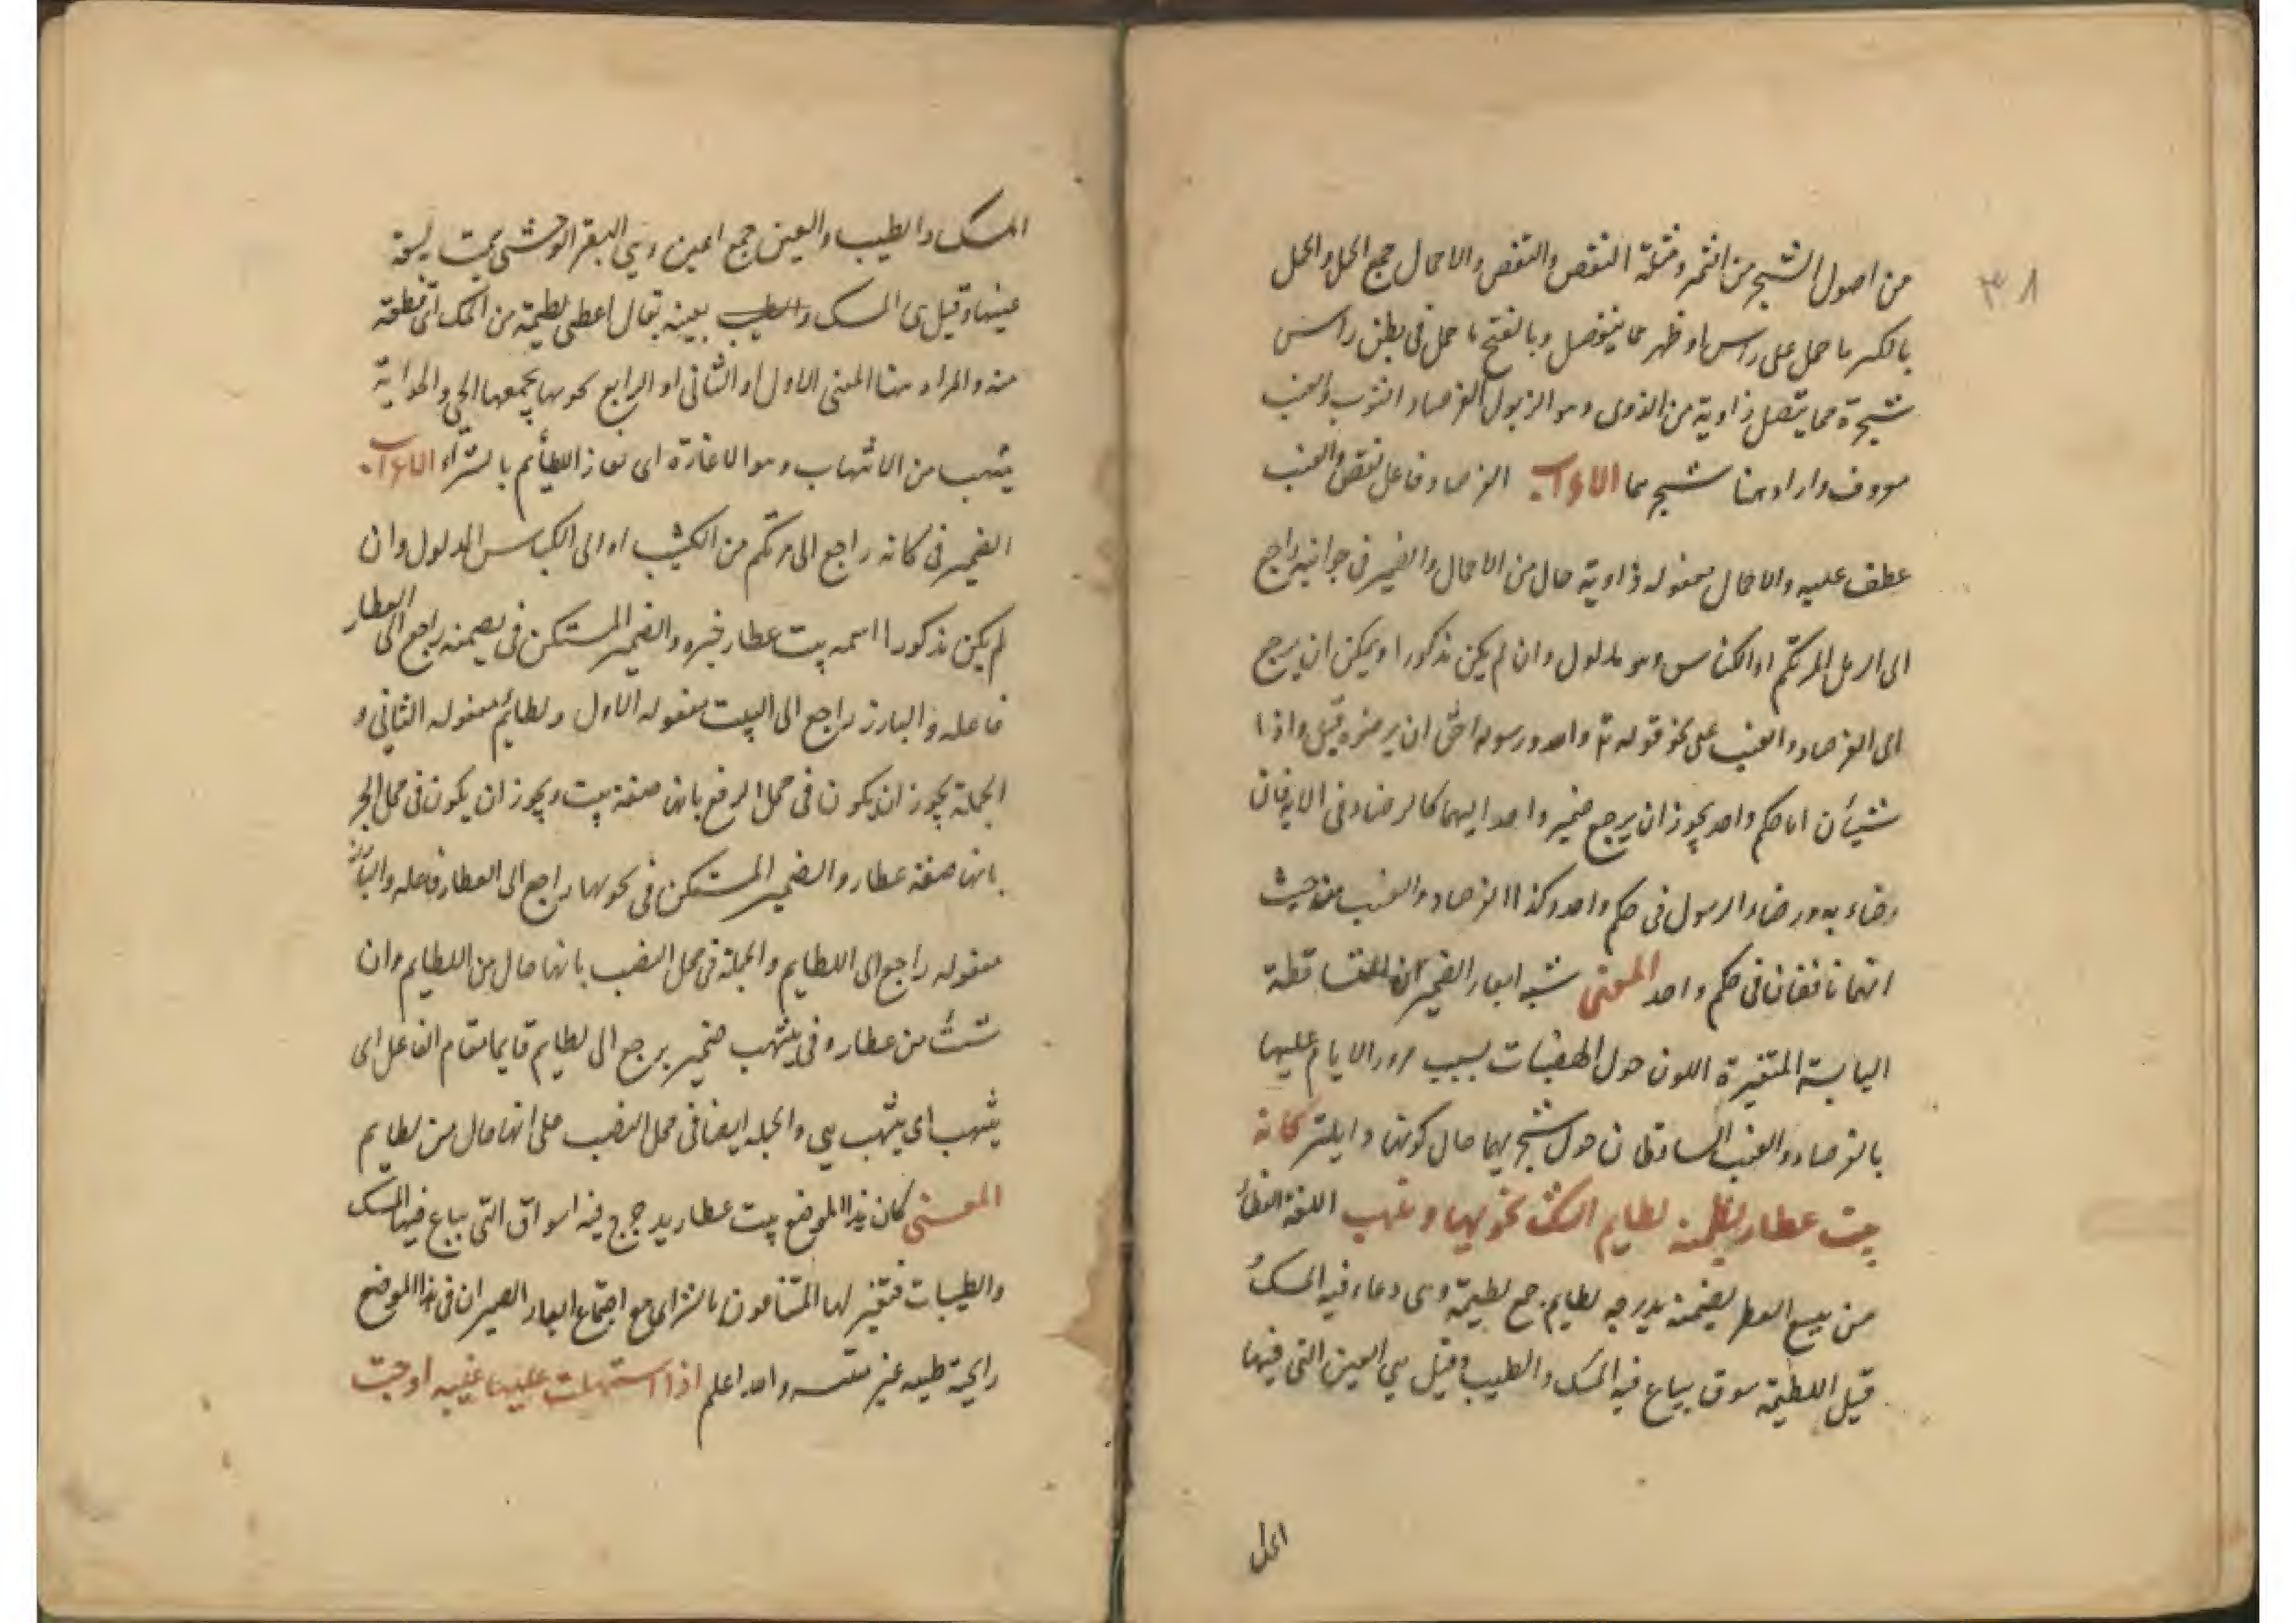 ٣٨
من اصول الشجر من الثمر وقتلة النفض والنفض والاحمال جمع الحمل والحمل
بالكسر ما حمل على راس او ظهر مما ينفصل وبالفتح ما حمل فى بطن راس
شجرة مما يتصل ذاوية من الذوى وهو الزبول الفرصاد التوب والعنب
معروف واراد هنا شجرهما الاعراب الفرصاد فاعل نفض والعنب
عطف عليه والاحمال مفعوله ذاوية حال من الاحمال والضمير فى جوانبه راجع
الى الرمل المرتكم او الكناس وهو مدلول وان لم يكن مذكورا ويمكن ان يرجع
الى الفرصاد والعنب على نحو قوله تع والله ورسوله احق ان يرضوه قيل واذا
شيئان لهما حكم واحد يجوز ان يرجع ضمير واحد اليهما كالرضاء فى الاية فان
رضاء الله ورضاء الرسول فى حكم واحد وكذا الفرصاد والعنب من حيث
انهما نافضان فى حكم واحد المعنى شبه ابعار الصيران المتساقطة
اليابسة المتغيرة اللون حول الهضبات بسبب مرور الايام عليها
بالفرصاد والعنب الساقطان حول شجرهما حال كونها ذابلة كانه
بيت عطار يضمنه لطايم المسك يحويها وتنهب اللغة العطار
من يبيع العطر يضمنه يدرجه لطايم جمع لطيمة وهى وعاء فيه المسك
قيل اللطيمة سوق يباع فيه المسك والطيب وقيل هي العين التى فيها
المسك والطيب والعين جمع اعين وهى البقر الوحشى سميت لسعة
عينها وقيل هى المسك والطيب بعينه يقال اعطى لطيمة من المسك اى قطعة
منه والمراد هنا المعنى الاول او الثانى او الرابع يحويها يجمعها الحى والحواية
ينتهب من الانتهاب وهو الاغارة اى تغار اللطائم بالشراء الاعراب
الضمير فى كانه راجع الى مرتكم من الكثيب او الى الكناس المدلول وان
لم يكن مذكورا اسمه بيت عطار خبره والضمير المستكن فى يضمنه راجع الى العطار
فاعله والبارز راجع الى البيت مفعوله الاول ولطايم مفعوله الثانى و
الجملة يجوز ان يكون فى محل الرفع بانها صفة بيت ويجوز ان يكون فى محل الجر
بانها صفة عطار والضمير المستكن فى يحويها راجع الى العطار فاعله والبارز
مفعوله راجع الى اللطايم والجملة فى محل النصب بانها حال من اللطايم وان
شئت من عطار وفى ينتهب ضمير يرجع الى لطايم قايما مقام الفاعل اى
ينتهب اى ينتهب هي والجملة ايضا فى محل النصب على انها حال من لطايم
المعنى كان هذا الموضع بيت عطار يدحرج فيه اسواق التى يباع فيها المسك
والطيبات فتغير لها المتنافسون بالشراء اى مع اجتماع ابعار الصيران فى هذا الموضع
رايحة طيبه غير منتنسه والله اعلم اذا استهلت عليها غبيه ارجت
الحمل